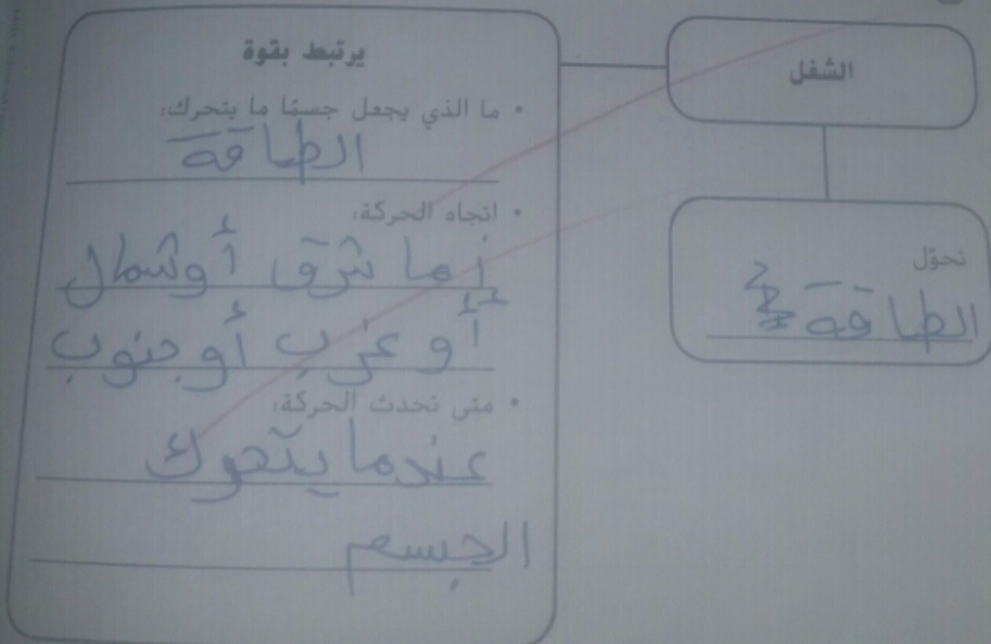 الشغل
يرتبط بقوة
• ما الذي يجعل جسمًا ما يتحرك:
الطاقة
• اتجاه الحركة:
إما شرق أو شمال
أو غرب أو جنوب
• متى تحدث الحركة:
عندما يتحرك
الجسم
تحوّل
الطاقة